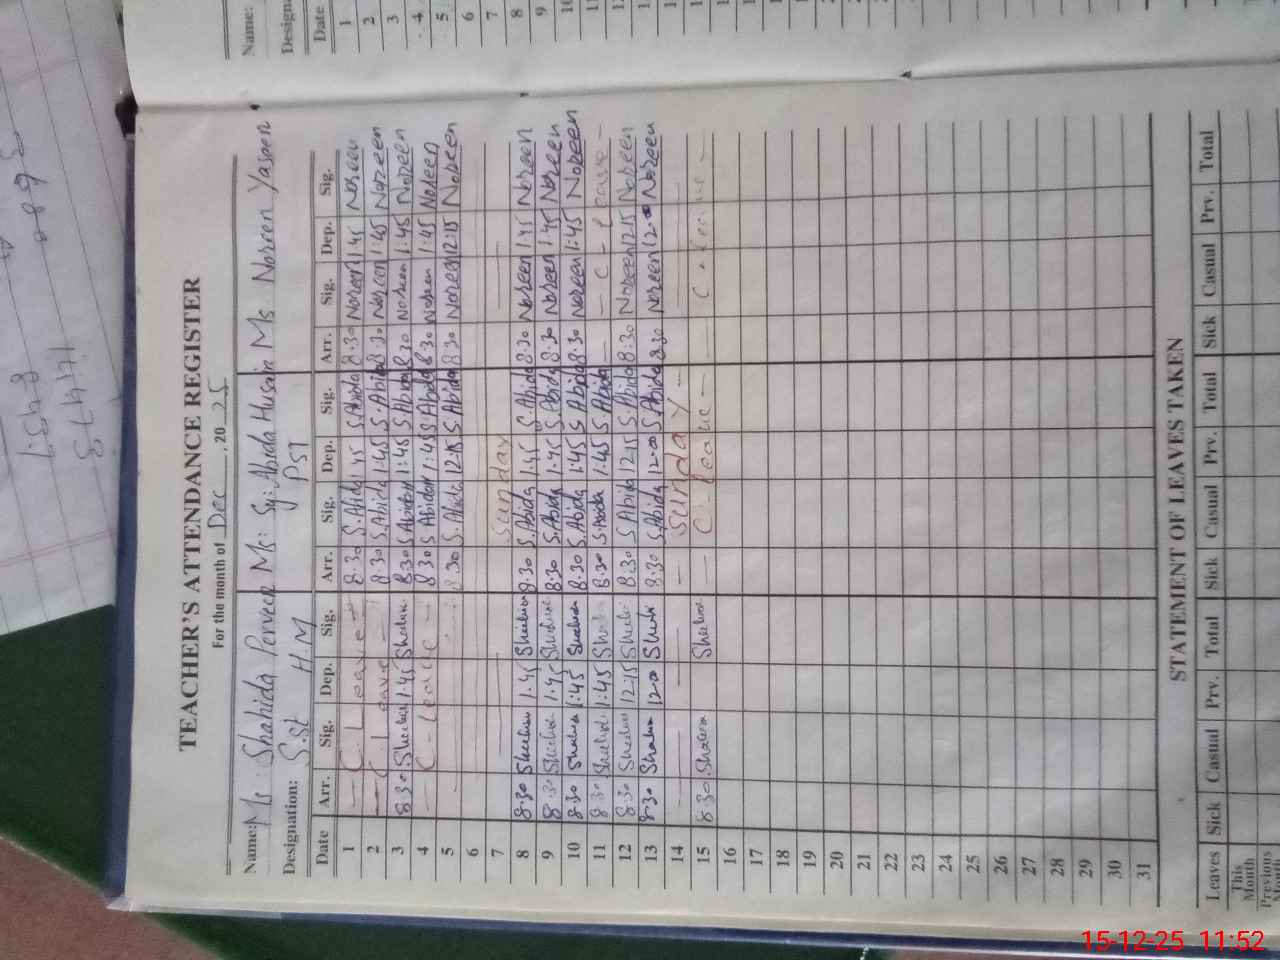 TEACHER'S ATTENDANCE REGISTER
For the month of Dec , 2025
Name: Ms: Shahida Perveen Ms: Sy: Abida Husain Ms. Noreen Yaseen
Designation: SST HM PST
Date Arr. Sig. Dep. Sig. Arr. Sig. Dep. Sig. Arr. Sig. Dep. Sig.
1 — C. Leave — 8.30 S.Abida 1.45 S.Abida 8.30 Noreen 1.45 Noreen
2 — C. Leave — 8.30 S.Abida 1:45 S.Abida 8.30 Noreen 1:45 Noreen
3 8.30 1.45 8.30 S Abida 1:45 S Abida 8.30 Noreen 1:45 Noreen
4 — C - Leave — 8.30 S Abida 1:45 S.Abida 8.30 Noreen 1:45 Noreen
5 8.30 S.Abida 12.15 S.Abida 8.30 Noreen 12.15 Noreen
6
7 Sunday
8 8.30 1.45 8.30 S.Abida 1.45 S.Abida 8.30 Noreen 1.45 Noreen
9 8.30 1.45 8.30 S.Abida 1.45 S.Abida 8.30 Noreen 1.45 Noreen
10 8.30 1:45 8.30 S.Abida 1:45 S Abida 8.30 Noreen 1:45 Noreen
11 8.30 1:45 8.30 S.Abida 1:45 S Abida — C - Leave —
12 8.30 12-15 8.30 S Abida 12-15 S.Abida 8.30 Noreen 12-15 Noreen
13 8.30 12.00 8.30 S.Abida 12.00 S.Abida 8.30 Noreen 12.00 Noreen
14 — Sunday —
15 8.30 — C. Leave — — C. Leave —
16
17
18
19
20
21
22
23
24
25
26
27
28
29
30
31
STATEMENT OF LEAVES TAKEN
Leaves Sick Casual Prv. Total Sick Casual Prv. Total Sick Casual Prv. Total
This Month
Previous
Name:
Design
Date
1
2
3
4
5
6
7
8
9
10
11
12
15-12-25 11:52